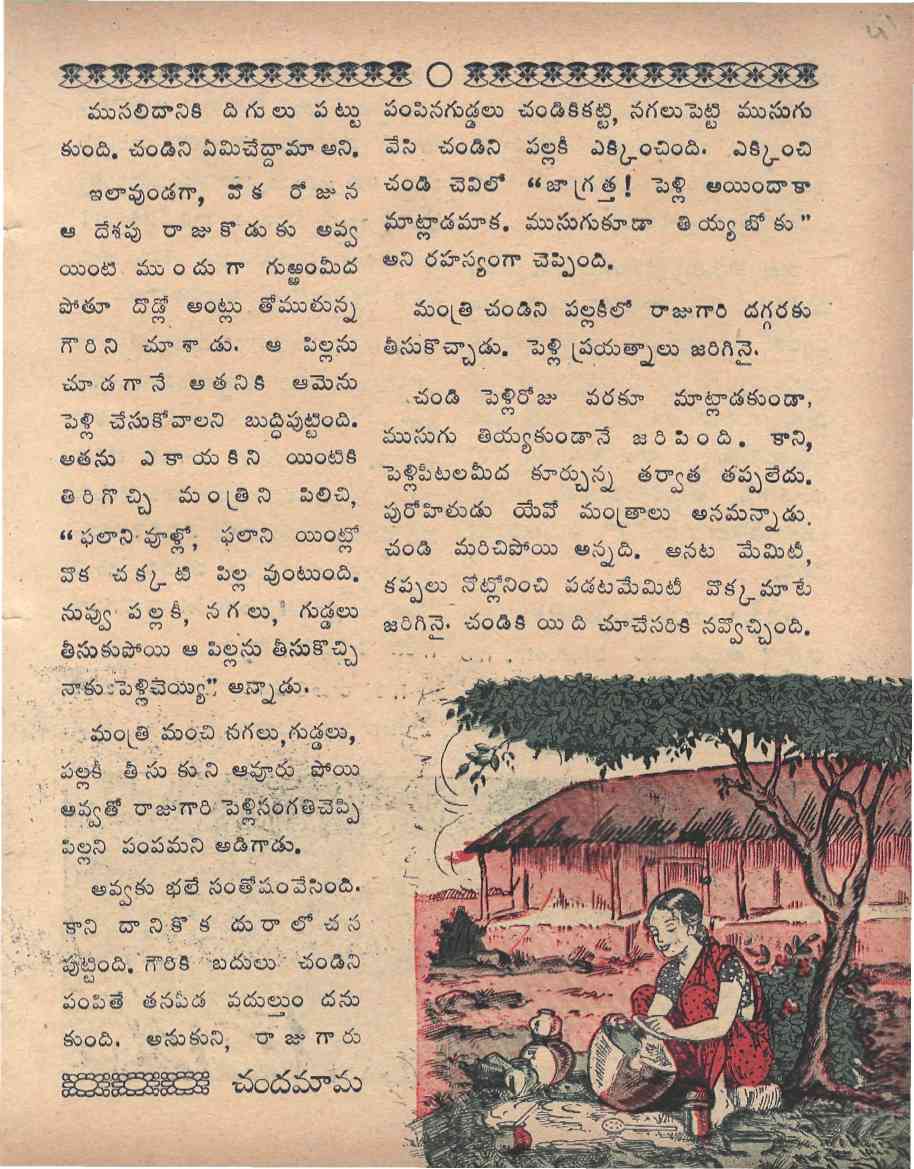 ముసలిదానికి దిగులు పట్టు
కుంది. చండిని ఏమిచేద్దామా అని.
ఇలావుండగా, వొక రోజున
ఆ దేశపు రాజుకొడుకు అవ్వ
యింటి ముందుగా గుఱ్ఱంమీద
పోతూ దొడ్లో అంట్లు తోముతున్న
గౌరిని చూశాడు. ఆ పిల్లను
చూడగానే అతనికి ఆమెను
పెళ్లి చేసుకోవాలని బుద్ధిపుట్టింది.
అతను ఎకాయకిని యింటికి
తిరిగొచ్చి మంత్రిని పిలిచి,
“ఫలాని వూళ్లో, ఫలాని యింట్లో
వొక చక్కటి పిల్ల వుంటుంది.
నువ్వు పల్లకీ, నగలు, గుడ్డలు
తీసుకుపోయి ఆ పిల్లను తీసుకొచ్చి
నాకు పెళ్లిచెయ్యి” అన్నాడు.
మంత్రి మంచి నగలు, గుడ్డలు,
పల్లకీ తీసుకుని ఆవూరు పోయి
అవ్వతో రాజుగారి పెళ్లిసంగతిచెప్పి
పిల్లని పంపమని అడిగాడు.
అవ్వకు భలే సంతోషంవేసింది.
కాని దానికొక దురాలోచన
పుట్టింది. గౌరికి బదులు చండిని
పంపితే తనపీడ వదుల్తుం దను
కుంది. అనుకుని, రాజుగారు
పంపినగుడ్డలు చండికికట్టి, నగలుపెట్టి ముసుగు
వేసి చండిని పల్లకీ ఎక్కించింది. ఎక్కించి
చండి చెవిలో “జాగ్రత్త! పెళ్లి అయిందాకా
మాట్లాడమాక. ముసుగుకూడా తియ్యబోకు”
అని రహస్యంగా చెప్పింది.
మంత్రి చండిని పల్లకీలో రాజుగారి దగ్గరకు
తీసుకొచ్చాడు. పెళ్లి ప్రయత్నాలు జరిగినై.
చండి పెళ్లిరోజు వరకూ మాట్లాడకుండా,
ముసుగు తియ్యకుండానే జరిపింది. కాని,
పెళ్లిపీటలమీద కూర్చున్న తర్వాత తప్పలేదు.
పురోహితుడు యేవో మంత్రాలు అనమన్నాడు.
చండి మరిచిపోయి అన్నది. అనట మేమిటీ,
కప్పలు నోట్లోనించి పడటమేమిటీ వొక్కమాటే
జరిగినై. చండికి యిది చూచేసరికి నవ్వోచ్చింది.
చందమామ